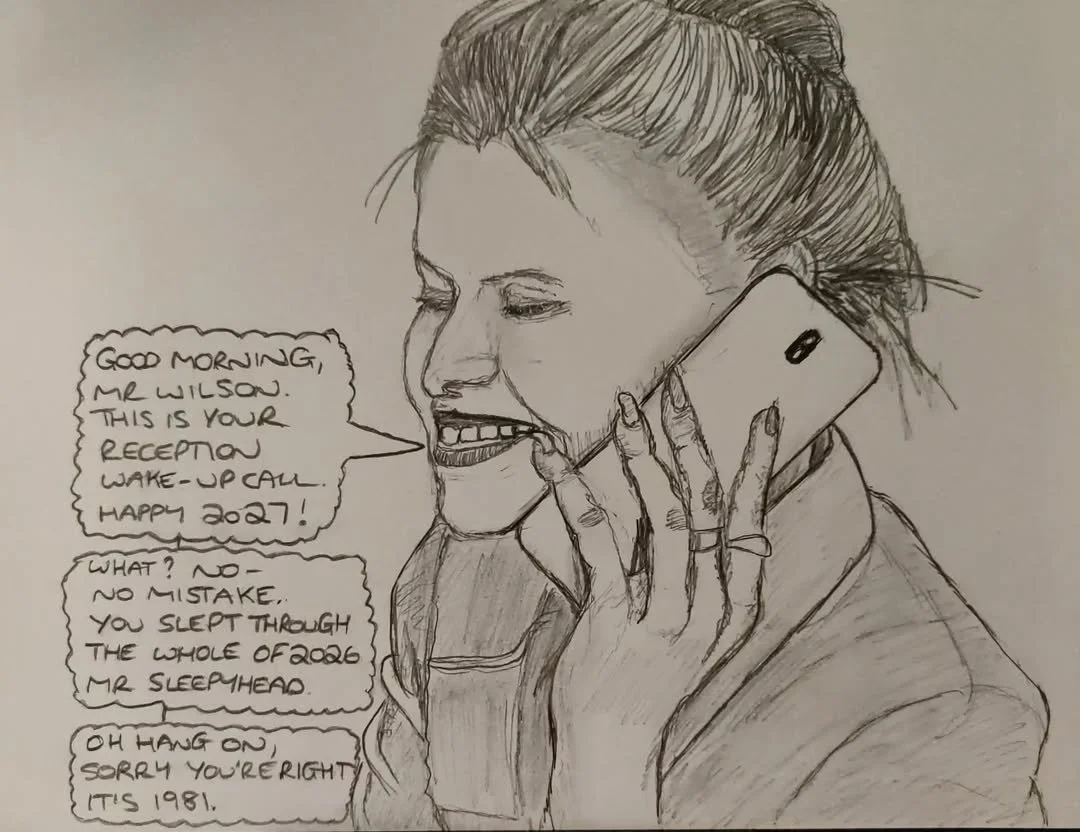 GOOD MORNING,
MR WILSON.
THIS IS YOUR
RECEPTION
WAKE-UP CALL.
HAPPY 2027!
WHAT? NO-
NO MISTAKE.
YOU SLEPT THROUGH
THE WHOLE OF 2026
MR SLEEPYHEAD.
OH HANG ON,
SORRY YOU'RE RIGHT
IT'S 1981.